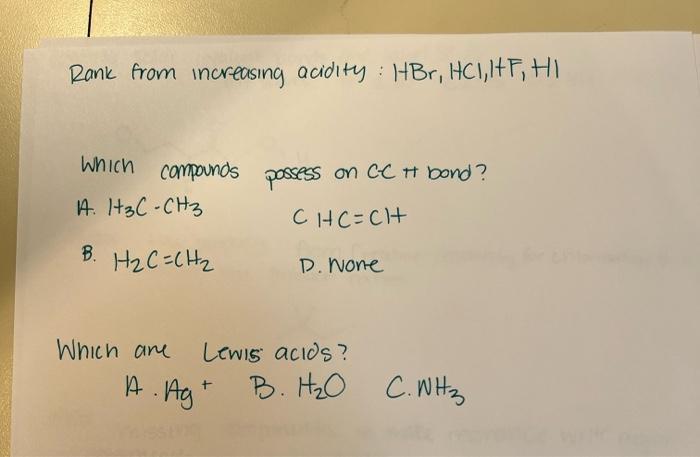 Rank from increasing acidity : HBr, HCl, HF, HI
Which compounds possess on C-C π bond?
A. H3C-CH3
C HC=CH
B. H2C=CH2
D. None
Which are Lewis acids?
A. Ag+ B. H2O C. NH3